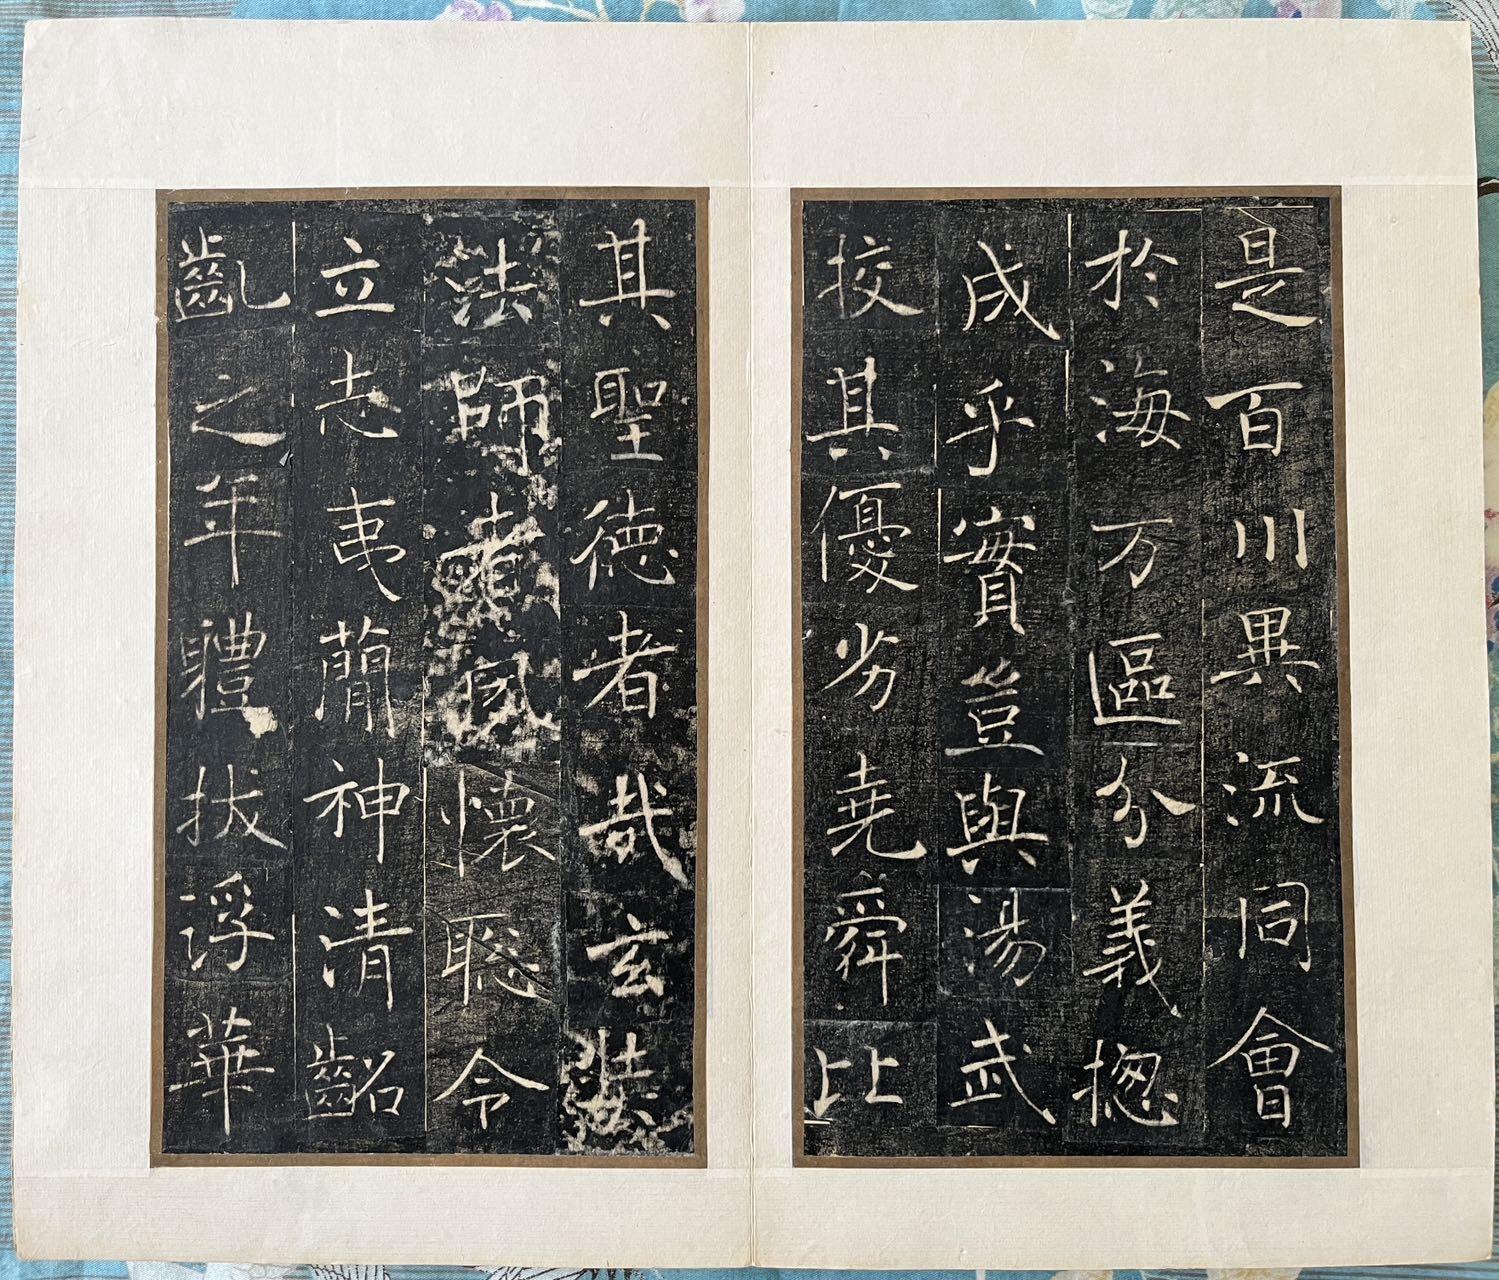 是百川異流同會
於海万區分義揔
成乎實豈與湯武
挍其優劣堯舜比
其聖徳者哉玄奘
法師者夙懷聡令
立志夷簡神清齠
齔之年體拔浮華